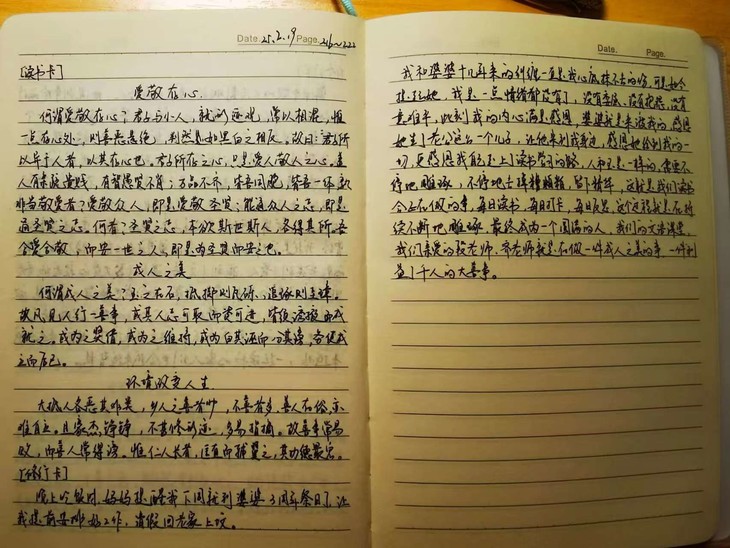 Date. 25.2.19 Page. 216~222
[读书卡]
爱敬存心.
何谓爱敬存心？君子与小人，就形迹观，常以相混，惟
一点存心处，则善恶悬绝，判然是如黑白之相反。故曰：君子所
以异于人者，以其存心也。君子所存之心，只是爱人敬人之心。盖
人有亲疏贵贱，有智愚贤不肖；万品不齐，皆吾同胞，皆吾一体，孰
非当敬爱者？爱敬众人，即是爱敬圣贤；能通众人之志，即是
通圣贤之志。何者？圣贤之志，本欲斯世斯人，各得其所。吾
合爱合敬，而安一世之人，即是为圣贤而安之也。
成人之美
何谓成人之美？玉之在石，抵掷则瓦砾，追琢则圭璋。
故凡见人行一善事，或其人志可取而资可进，皆须诱掖而成
就之。或为之奖借，或为之维持，或为白其诬而分其谤，务使成
立而后已。
环境改变人生
大抵人各恶其非类，乡人之善者少，不善者多。善人在俗，亦
难自立。且豪杰铮铮，不甚修形迹，多易指摘。故善事常易
败，而善人常得谤。惟仁人长者，匡直而辅翼之，其功德最宏。
[修行卡]
晚上吃饭时，妈妈提醒我下周就到婆婆3周年祭日了，让
我提前安排好工作，请假回老家上坟。
Date. Page.
我和婆婆十几年来的纠缠一直是我心底抹不去的，可是如今
提起她，我是一点情绪都没有了，没有委屈、没有抱怨、没有
意难平，此刻我的内心满是感恩，婆婆就是来渡我的，感恩
她生了老公这么一个儿子，让他来到我身边，感恩她给到我的一
切，更感恩我自己走上了读书学习的路，人和玉是一样的，需要不
停地雕琢，不停地去掉糟粕，留下精华，这就是我们读书
会正在做的事，每日读书、每日打卡、每日反思，这个过程就是在持
续不断地雕琢，最终成为一个圆满的人，我们的文泽课堂，
我们亲爱的殷老师、齐老师就是在做一件成人之美的事，一件利
益了千人的大善事。